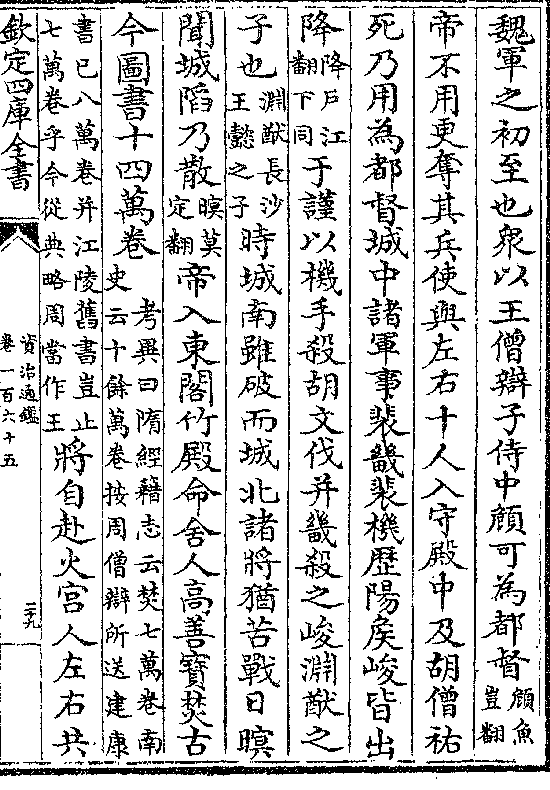 魏軍之初至也衆以王僧辯子侍中顗可為都督顗魚豈翻
帝不用更奪其兵使與左右十人入守殿中及胡僧祐
死乃用為都督城中諸軍事裴畿裴機歴陽矦峻皆出
降降戶江翻下同于謹以機手殺胡文伐并畿殺之峻淵猷之
子也淵猷長沙王懿之子時城南雖破而城北諸將猶苦戰日暝
聞城䧟乃散暝莫定翻帝入東閤竹殿命舍人高善寳焚古
今圖書十四萬卷考異曰隋經籍志云焚七萬卷南史云十餘萬卷按周僧辯所送建康
書已八萬卷并江陵舊書豈止七萬卷乎今從典略周當作王將自赴火宫人左右共
欽定四庫全書
資治通鑑
卷一百六十五
二十九